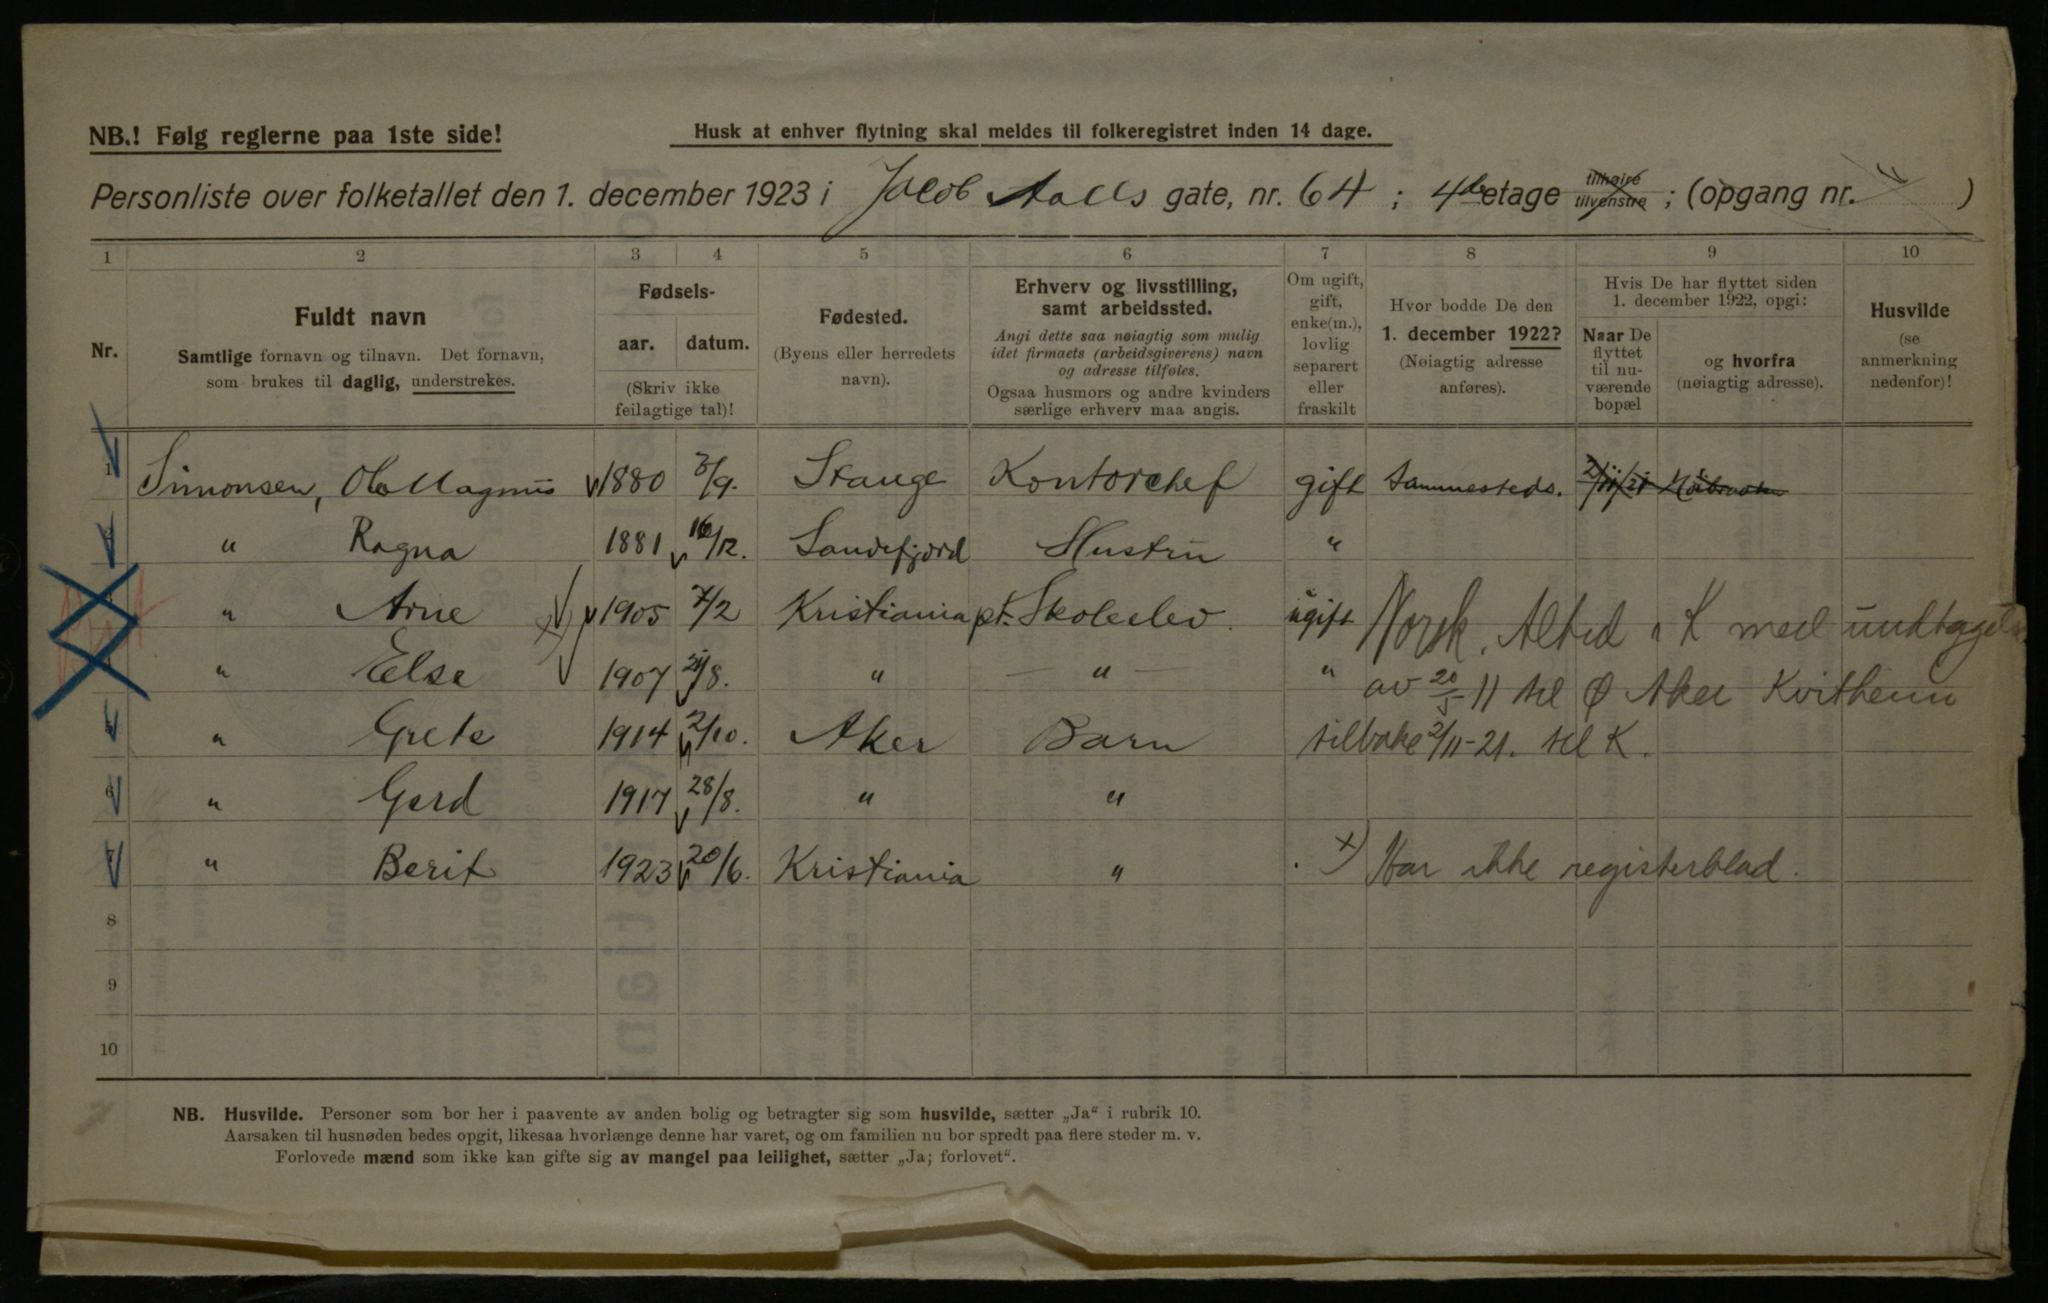 NB.! Følg reglerne paa 1ste side!
Husk at enhver flytning skal meldes til folkeregistret inden 14 dage.
Personliste over folketallet den 1. december 1923 i Jacob Aalls gate, nr. 64 ; 4de etage tilhøire tilvenstre ; (opgang nr. )
1 2 3 4 5 6 7 8 9 10
Nr.
Fuldt navn
Samtlige fornavn og tilnavn. Det fornavn,
som brukes til daglig, understrekes.
Fødsels-
aar. datum.
(Skriv ikke
feilagtige tal)!
Fødested.
(Byens eller herredets
navn).
Erhverv og livsstilling,
samt arbeidssted.
Angi dette saa nøiagtig som mulig
idet firmaets (arbeidsgiverens) navn
og adresse tilføies.
Ogsaa husmors og andre kvinders
særlige erhverv maa angis.
Om ugift,
gift,
enke(m.),
lovlig
separert
eller
fraskilt
Hvor bodde De den
1. december 1922?
(Nøiagtig adresse
anføres).
Hvis De har flyttet siden
1. december 1922, opgi:
Naar De
flyttet
til nu-
værende
bopæl
og hvorfra
(nøiagtig adresse).
Husvilde
(se
anmerkning
nedenfor)!
1 Simonsen, Ole Magnus 1880 3/9. Stange Kontorchef gift Sammesteds. 2/11/21
" Ragna 1881 16/12. Sandefjord Hustru "
" Arne 1905 7/2 Kristiania pt. Skoleelev. ugift Norsk. Altid i K med undtagelse
" Else 1907 21/8. " " " av 20/5 11 til Ø Aker Kvitheim
5 " Grete 1914 2/10. Aker Barn tilbake 2/11-21. til K.
6 " Gerd 1917 28/8. " "
7 " Berit 1923 20/6. Kristiania " x) Har ikke registerblad.
8
9
10
NB. Husvilde. Personer som bor her i paavente av anden bolig og betragter sig som husvilde, sætter „Ja“ i rubrik 10.
Aarsaken til husnøden bedes opgit, likesaa hvorlænge denne har varet, og om familien nu bor spredt paa flere steder m. v.
Forlovede mænd som ikke kan gifte sig av mangel paa leilighet, sætter „Ja; forlovet“.